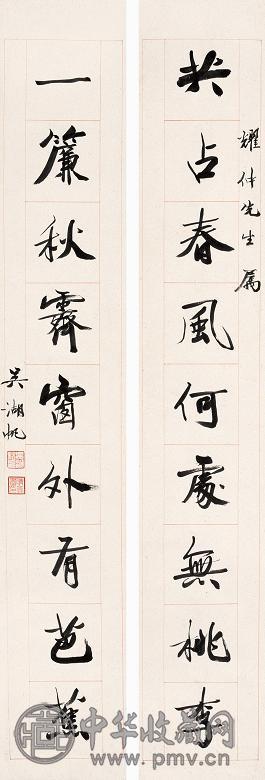 共占春風何處無桃李
耀仲先生属
一簾秋霽窗外有芭蕉
吳湖帆
中华收藏网
www.pmv.cn